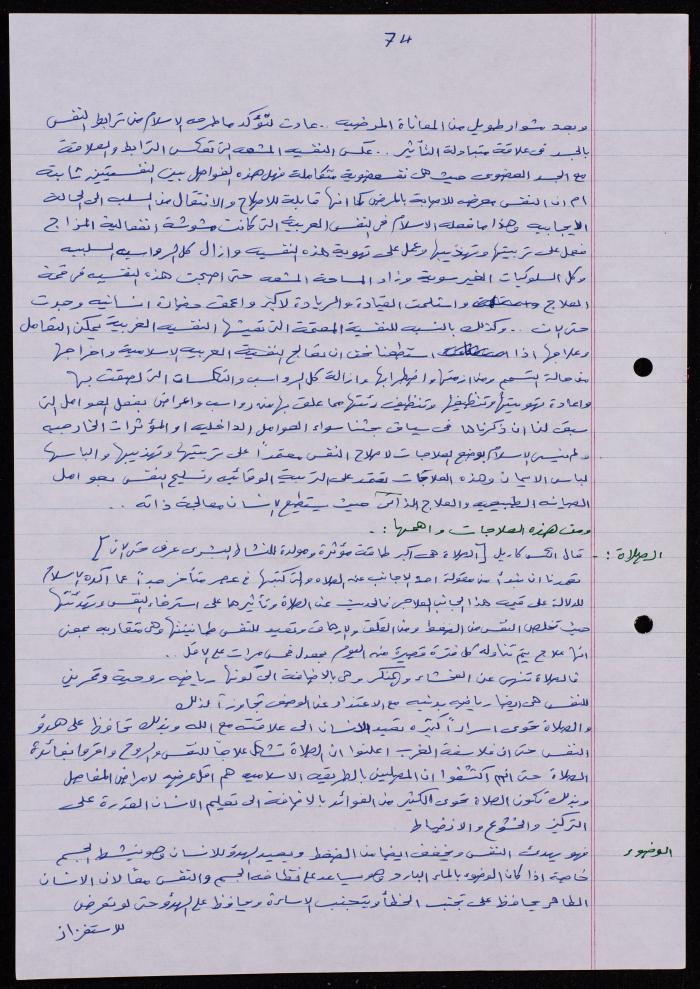 74
وبعد مشوار طويل من المعاناة المرضيه .. عادت لتؤكد ماطرحه الاسلام من ترابط النفس
بالجسد في علاقة متبادلة التأثير .. عكس النفسيه المشعه التي تعكس الترابط والعلاقة
مع الجسد العضوي حيث هي نفسعضوية متكاملة فهل هذه الفواصل بين النفسيتين ثابتة
ام ان النفس معرضه للاصابة بالمرض كما انها قابلة للاصلاح والانتقال من السلب الى الحالة
الايجابيه وهذا ما فعله الاسلام في النفس العربية التي كانت مشوشة انفعالية المزاج
فعمل على تربيتها وتهذيبها وعمل على تهوية هذه النفسيه وازال كل الرواسب السلبيه
وكل السلوكيات الغير سوية وزاد المساحة المشعه حتى اصبحت هذه النفسيه في قمة
العلاج واستلمت القيادة والريادة لاكبر واعمق حضارة انسانيه وجدت
حتى الان .. وكذلك بالنسبه للنفسية المعتمة التي تعيشها النفسيه العربية يمكن التعامل
وعلاجها اذا استطعنا نحن ان نعالج النفسية العربيه الاسلامية واخراجها
من حالة التسمم ومن ازمتها واضطرابها وازالة كل الرواسب والتكلسات التي لصقت بها
واعادة تهويتها وتنظيفها وتنظيف رئتها مما علق بها من رواسب واعراض بفعل العوامل التي
سبق لنا ان ذكرناها في سياق بحثنا سواء العوامل الداخليه او المؤثرات الخارجيه
ولم ينس الاسلام بوضع العلاجات لاصلاح النفس معتمداً على تربيتها وتهذيبها والباسها
لباس الايمان وهذه العلاجات تعتمد على التربية الوقائيه وتسليح النفس بعوامل
الصيانه الطبيعيه والعلاج الذاتي حيث يستطيع الانسان معالجة ذاته ..
ومن هذه العلاجات واهمها :.
الصلاة : - قال الكس كاريل [الصلاة هي اكبر طاقة مؤثرة ومولدة للنشاط البشري عرف حتى الان]
تقدرنا ان نبدأ من مقولة احد الاجانب عن الصلاه والتي كتبها في عصر متأخر جداً عما اكده الاسلام
للدلالة على قيمة هذا الجانب العلاجي فالحديث عن الصلاة وتأثيرها على استرخاء النفس وتهدئتها
حيث تخلص النفس من الضغط ومن القلق والارهاق وتعيد للنفس طمأنينتها وهي متقاربه بمعنى
انها علاج يتم تناوله كل فترة قصيرة من اليوم بمعدل خمس مرات على الاقل ..
فالصلاة تنهى عن الفحشاء والمنكر وهي بالاضافة الى كونها رياضه روحية وتمرين
للنفس هي ايضا رياضه بدنيه مع الاعتذار عن الوصف تجاوزاً لذلك
والصلاة تحوي اسراراً كثيره تعيد الانسان الى علاقته مع الله وبذلك تحافظ على هدوء
النفس حتى ان فلاسفة الغرب اعلنوا ان الصلاة تشكل علاجاً للنفس والروح واعترفوا بفائدة
الصلاة حتى انهم اكتشفوا ان المصلين بالطريقه الاسلاميه هم اقل عرضه لامراض المفاصل
وبذلك تكون الصلاة تحوي الكثير من الفوائد بالاضافة الى تعليم الانسان القدرة على
التركيز والخشوع والانضباط
الوضوء فهو يهدئ النفس ويخفف ايضا من الضغط ويعيد الهدوء للانسان وهو ينشط الجسم
خاصة اذا كان الوضوء بالماء البارد وهو يساعد على نظافة الجسم والنفس معاً لان الانسان
الطاهر يحافظ على تجنب الخطأ ويتجنب الاساءة ويحافظ على الهدوء حتى لو تعرض
للاستفزاز